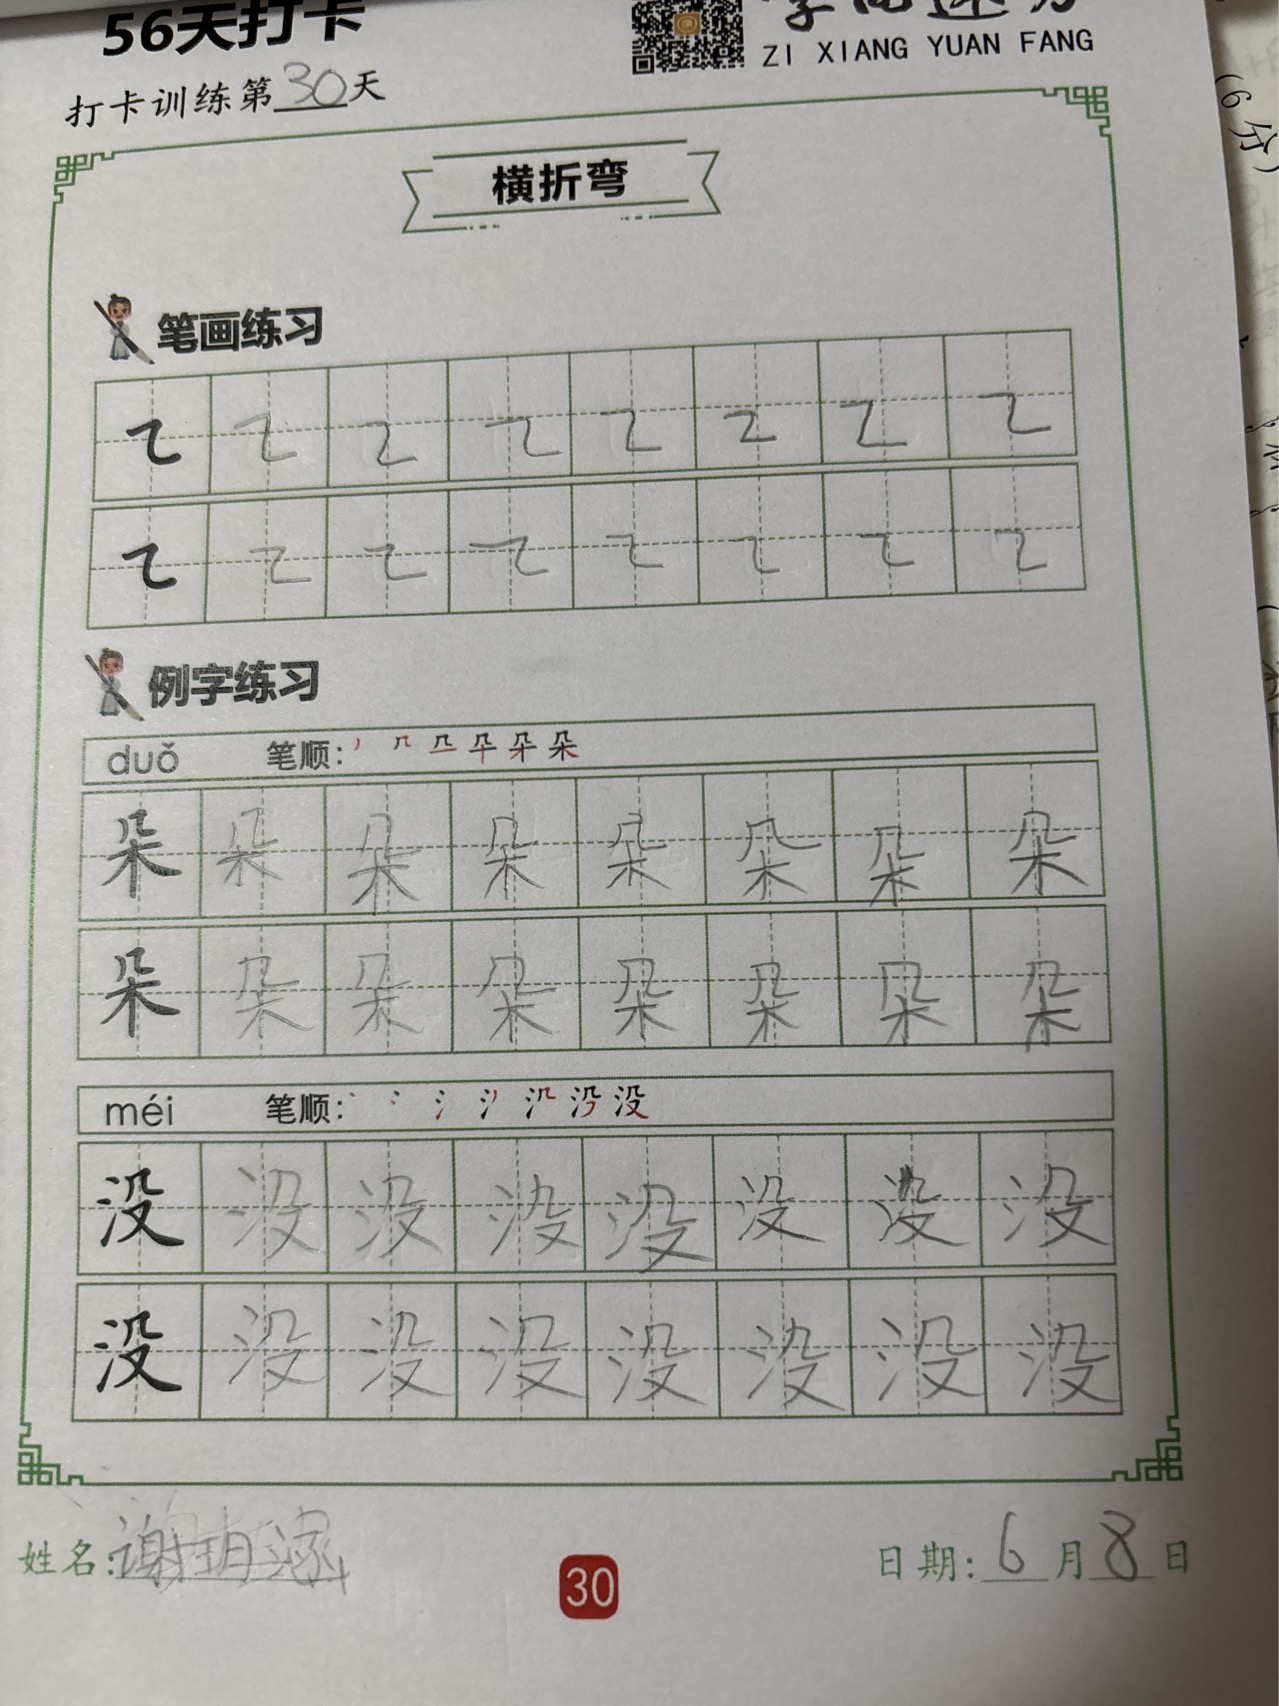 56天打卡
ZI XIANG YUAN FANG
打卡训练第30天
(6分)
横折弯
笔画练习
例字练习
duǒ 笔顺:
朵 朵 朵 朵 朵 朵 朵 朵
朵 朵 朵 朵 朵 朵 朵 朵
méi 笔顺:
没 没 没 没 没 没 没 没
没 没 没 没 没 没 没 没
姓名:谢玥涵
30
日期:6月8日